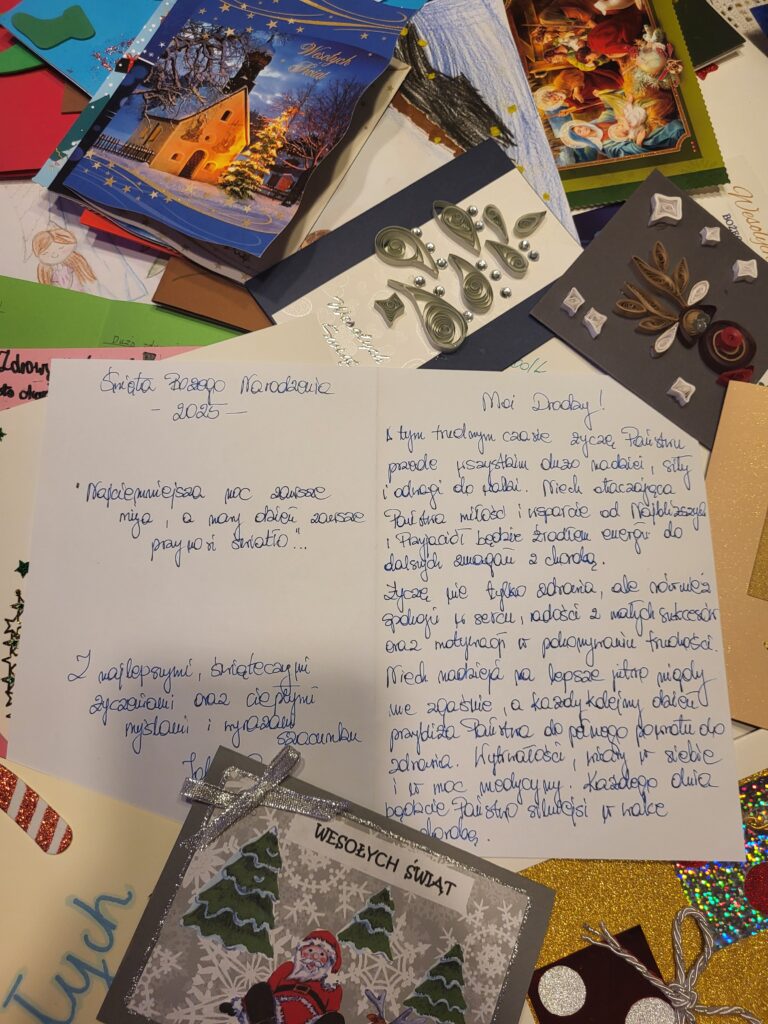 Wesołych
Świąt
Wesołych
Zdrowy
Wesołych
Świąt
Święta Bożego Narodzenia
- 2025 -
"Najciemniejsza noc zawsze
mija, a nowy dzień zawsze
przynosi światło"...
Z najlepszymi, świątecznymi
życzeniami oraz ciepłymi
myślami i wyrazami
szacunku
Moi Drodzy!
W tym trudnym czasie życzę Państwu
przede wszystkim dużo nadziei, siły
i odwagi do walki. Niech otaczająca
Państwa miłość i wsparcie od Najbliższych
i Przyjaciół będzie źródłem energii do
dalszych zmagań z chorobą.
Życzę nie tylko zdrowia, ale również
spokoju w sercu, radości z małych sukcesów
oraz motywacji w pokonywaniu trudności.
Niech nadzieja na lepsze jutro nigdy
nie zgaśnie, a każdy kolejny dzień
przybliża Państwa do pełnego powrotu do
zdrowia. Wytrwałości, wiary w siebie
i w moc medycyny. Każdego dnia
bądźcie Państwo silniejsi w walce
chorobą.
WESOŁYCH ŚWIĄT
Tych